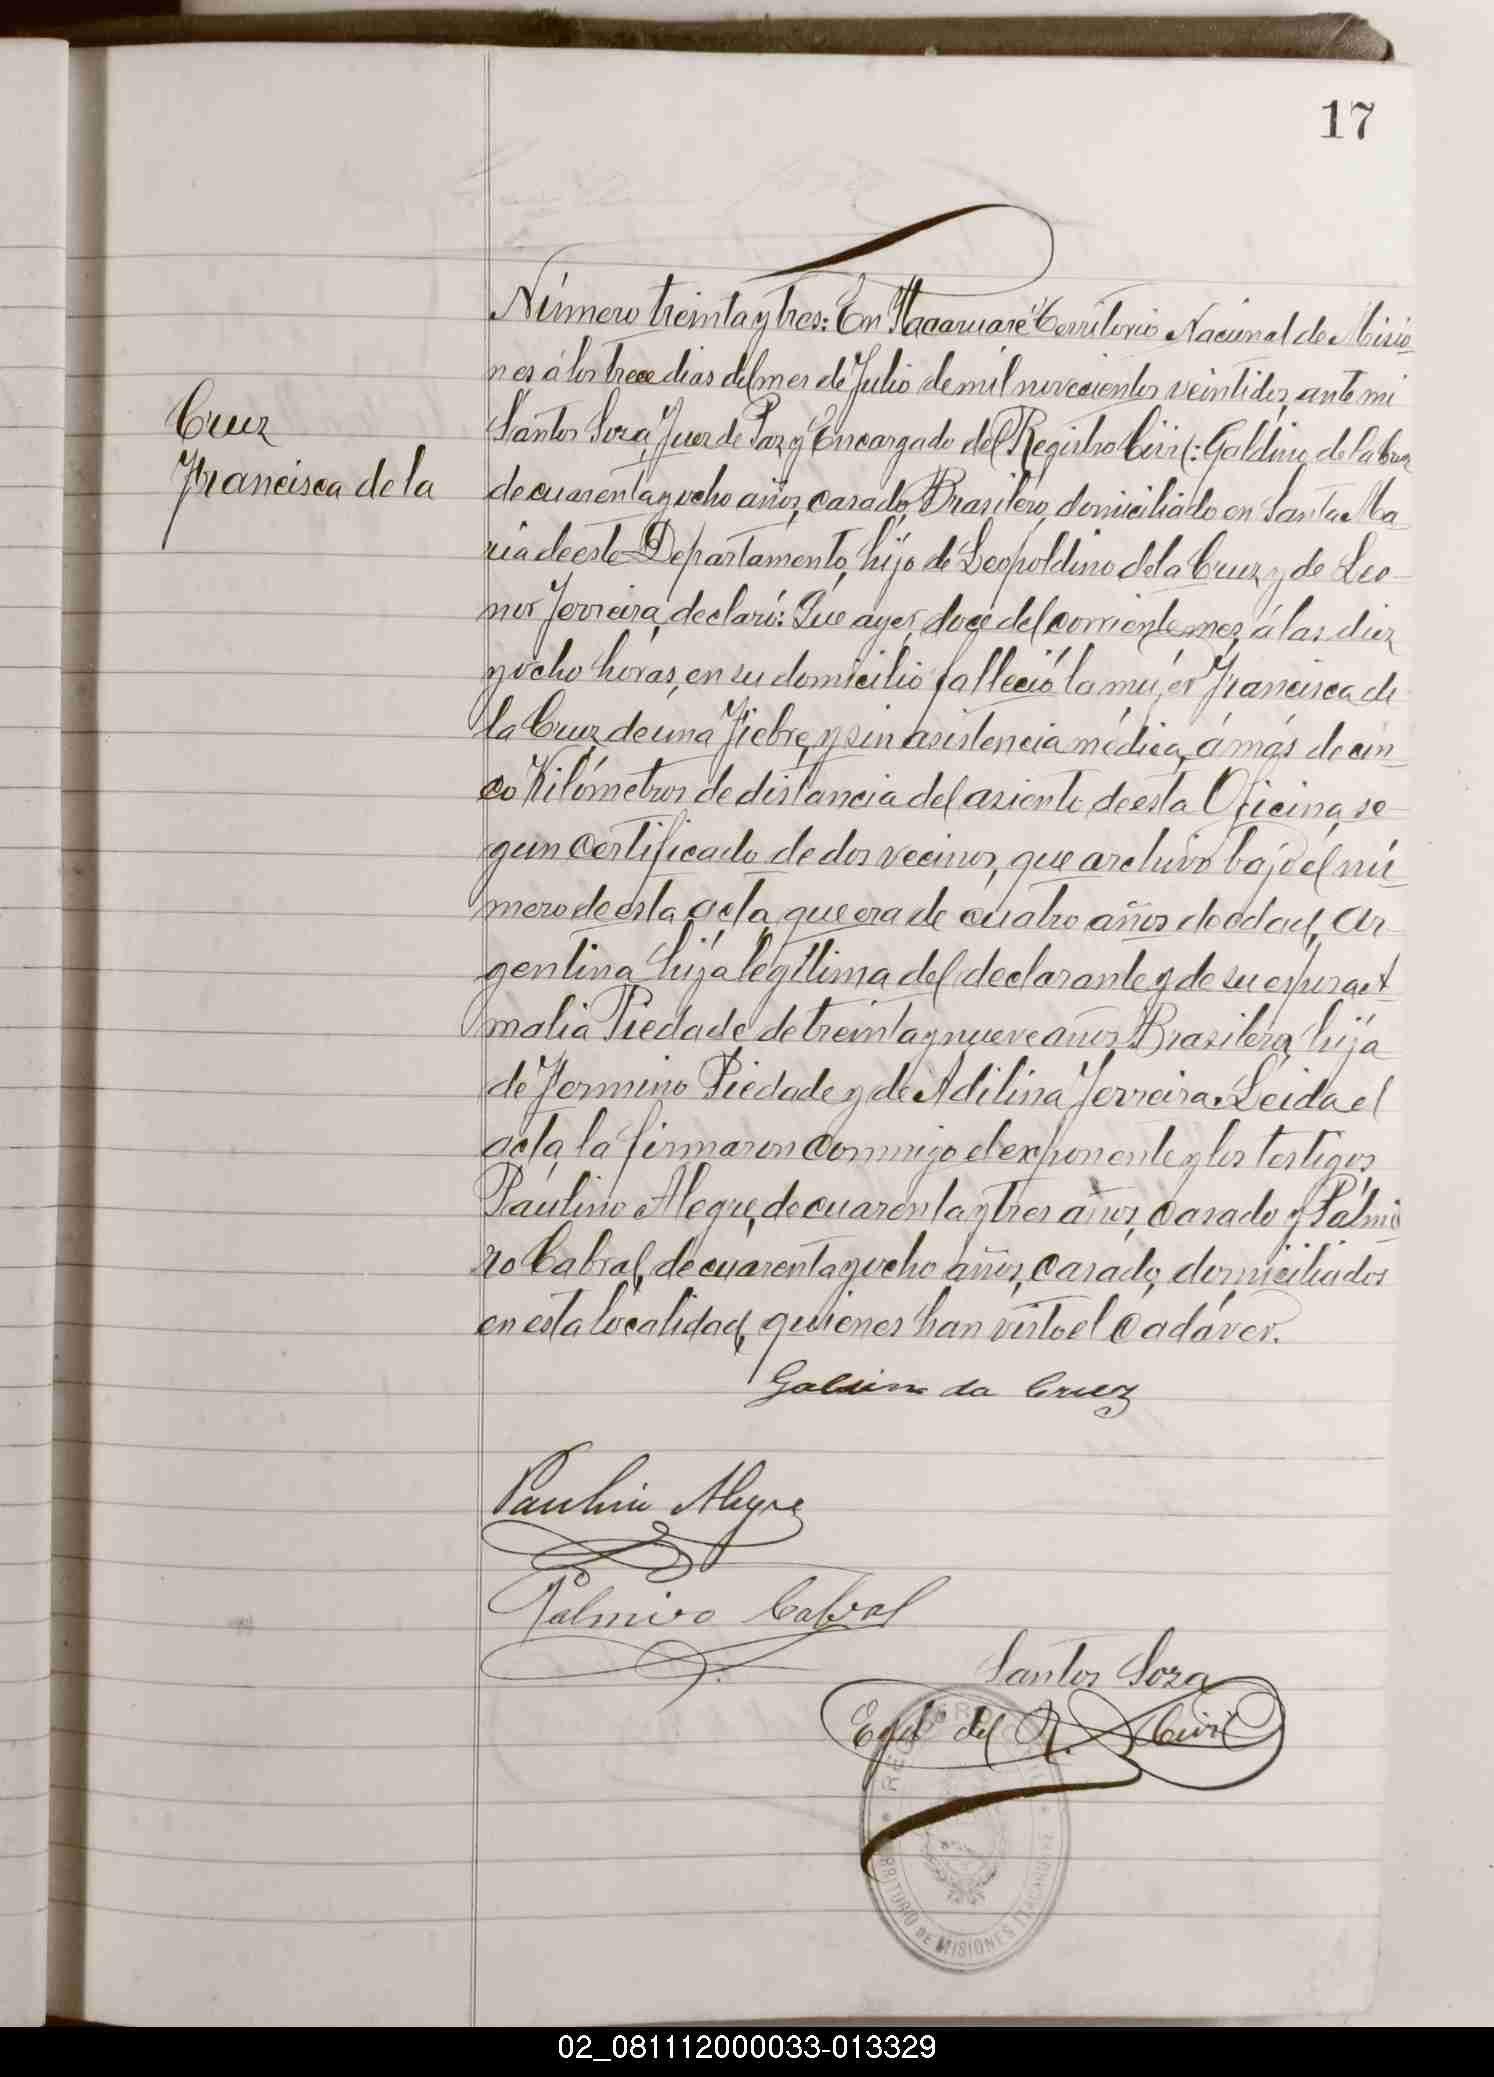 17
Número treinta y tres: En Itacaruaré Territorio Nacional de Misio-
nes á los trece dias del mes de Julio de mil novecientos veintidos, ante mi
Santos Soza, Juez de Paz y Encargado del Registro Civil: Galdino de la Cruz
Cruz
Francisca de la
de cuarenta y ocho años, casado, Brasilero, domiciliado en Santa Ma-
ria de este Departamento, hijo de Leopoldino de la Cruz y de Leo-
nor Ferreira, declaró: Que ayer, doce del corriente mes, á las diez
y ocho horas, en su domicilio falleció la mujer Francisca de
la Cruz, de una Fiebre, y sin asistencia médica, á más de cin-
co Kilómetros de distancia del asiento de esta Oficina, se-
gun certificado de dos vecinos, que archivo bajo el nú-
mero de esta acta, que era de cuatro años de edad, Ar-
gentina, hija légitima del declarante y de su esposa A-
malia Piedade de treinta y nueve años, Brasilera, hija
de Fermino Piedade y de Adilina Ferreira. Leida el
acta, la firmaron conmigo el exponente y los testigos,
Paulino Alegre, de cuarenta y tres años, casado y Palmi-
ro Cabral, de cuarenta y ocho años, casado, domiciliados
en esta localidad, quienes han visto el cadáver.
Galdino da Cruz
Paulino Alegre
Palmiro Cabral
Santos Soza
Egdo del R. Civil
REGISTRO CIVIL
TERRITORIO DE MISIONES ITACARUARÉ
02_081112000033-013329